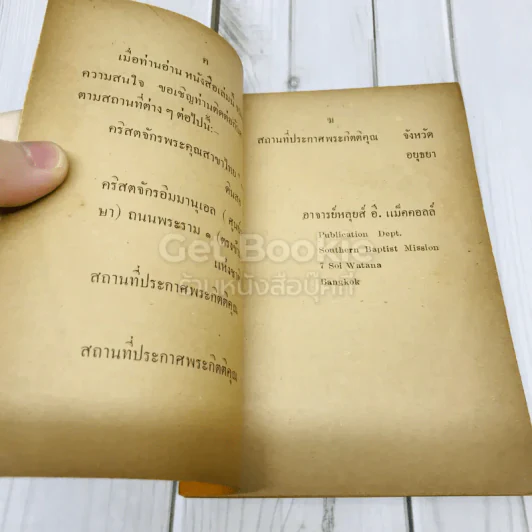 ค
เมื่อท่านอ่าน หนังสือเล่มนี้
ความสนใจ ขอเชิญท่านติดต่อ
ตามสถานที่ต่าง ๆ ต่อไปนี้:-
คริสตจักรพระคุณสาขาไทย
คริสตจักรอิมมานูเอล (
ษา) ถนนพระราม ๑ (ตรงข้าม
แห่ง
สถานที่ประกาศพระกิตติคุณ
สถานที่ประกาศพระกิตติคุณ
ฆ
สถานที่ประกาศพระกิตติคุณ จังหวัด
อยุธยา
อาจารย์หลุยส์ อี. แม็คคอลล์
Publication Dept.
Southern Baptist Mission
7 Soi Watana
Bangkok
Get Bookie
ร้านหนังสือบุ๊คกี้